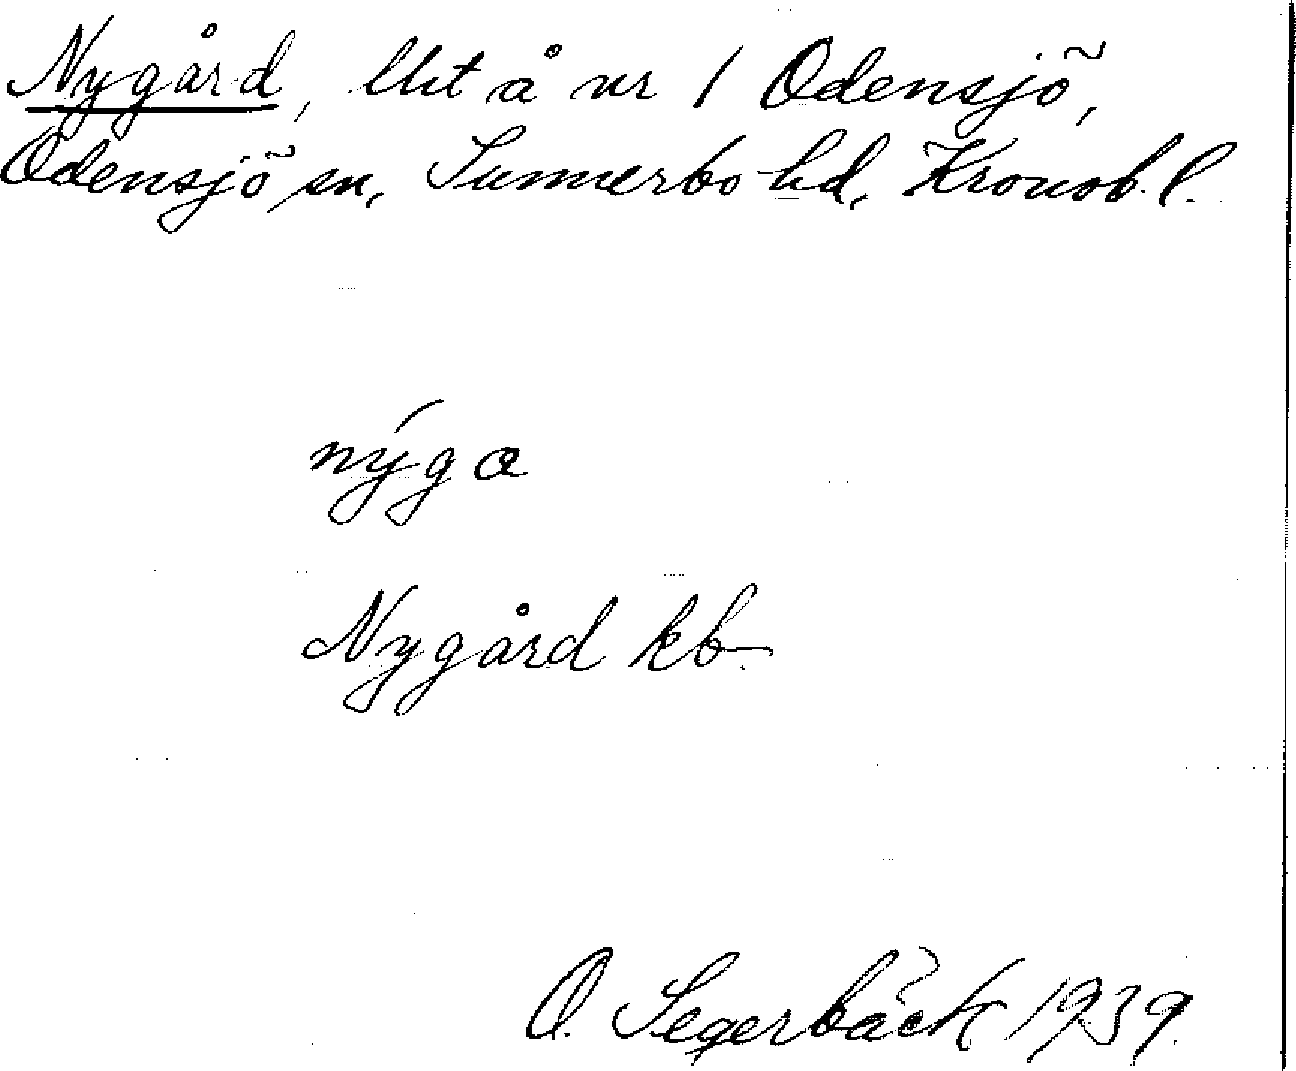 Nygård, lht å nr 1 Odensjö,
Odensjö sn, Sunnerbo hd, Kronob. l.
nýga
Nygård kb
O. Segerbäck 1939.